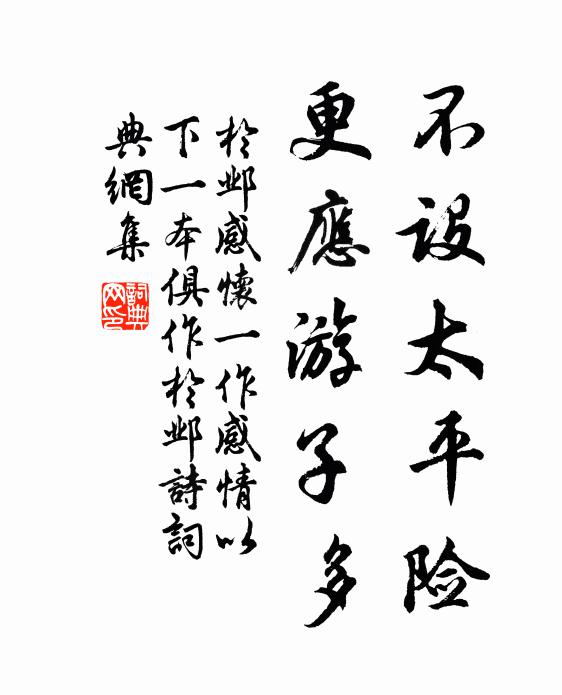 不設太平险
更應游子多
於邺感懷一作感情以
下一本俱作於邺詩詞
典網集
詞典网印